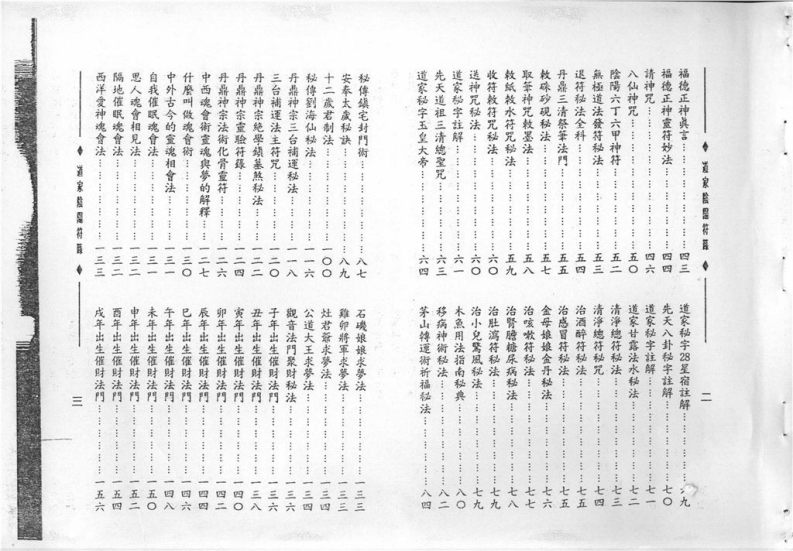 ◆ 道家陰陽符籙 ◆
二
福德正神真言…………四三
福德正神靈符妙法…………四四
請神咒…………四六
八仙神咒…………五〇
陰陽六丁六甲神符…………五二
無極道法發符秘法…………五三
退符秘法全科…………五四
丹鼎三清祭筆法門…………五五
敕硃砂硯秘法…………五七
取筆神咒敕墨法…………五八
敕紙敕水符咒秘法…………五九
收符敕符咒秘法…………六〇
送神咒秘法…………六〇
道家秘字註解…………六一
先天道祖三清總聖咒…………六三
道家秘字玉皇大帝…………六四
道家秘字28星宿註解…………九
先天八卦秘字註解…………七〇
道家秘字註解…………七一
道家甘露法水秘法…………七二
清淨總符秘法…………七三
清淨總符秘咒…………七四
治酒醉符秘法…………七五
治感冒符秘法…………七五
金母娘娘金丹秘法…………七六
治咳嗽符秘法…………七七
治腎膽糖尿病秘法…………七八
治肚瀉符秘法…………七九
治小兒驚風秘法…………七九
木魚用法指南秘典…………八〇
移病神術秘法…………八二
茅山轉運術祈福秘法…………八四
秘傳鎮宅封門術…………八七
安奉太歲秘訣…………八九
十二歲君制法…………一〇〇
秘傳劉海仙秘法…………一一六
丹鼎神宗三台補運秘法…………一一八
三台補運法主符咒…………一二〇
丹鼎神宗絕學鎮墓煞秘法…………一二二
丹鼎神宗靈驗符籙…………一二四
丹鼎神宗法術化骨靈符…………一二六
中西魂會術靈魂與夢的解釋…………一二七
什麼叫做魂會術…………一三〇
中外古今的靈魂相會法…………一三一
自我催眠魂會法…………一三一
思人魂會相見法…………一三二
隔地催眠魂會法…………一三二
西洋愛神魂會法…………一三三
石磯娘娘求夢法…………一三三
雞卵將軍求夢法…………一三三
灶君爺求夢法…………一三四
公道大王求夢法…………一三四
觀音法門聚財秘法…………一三六
子年出生催財法門…………一三六
丑年出生催財法門…………一三八
寅年出生催財法門…………一四〇
卯年出生催財法門…………一四二
辰年出生催財法門…………一四四
巳年出生催財法門…………一四六
午年出生催財法門…………一四八
未年出生催財法門…………一五〇
申年出生催財法門…………一五二
酉年出生催財法門…………一五四
戌年出生催財法門…………一五六
◆ 道家陰陽符籙 ◆
三